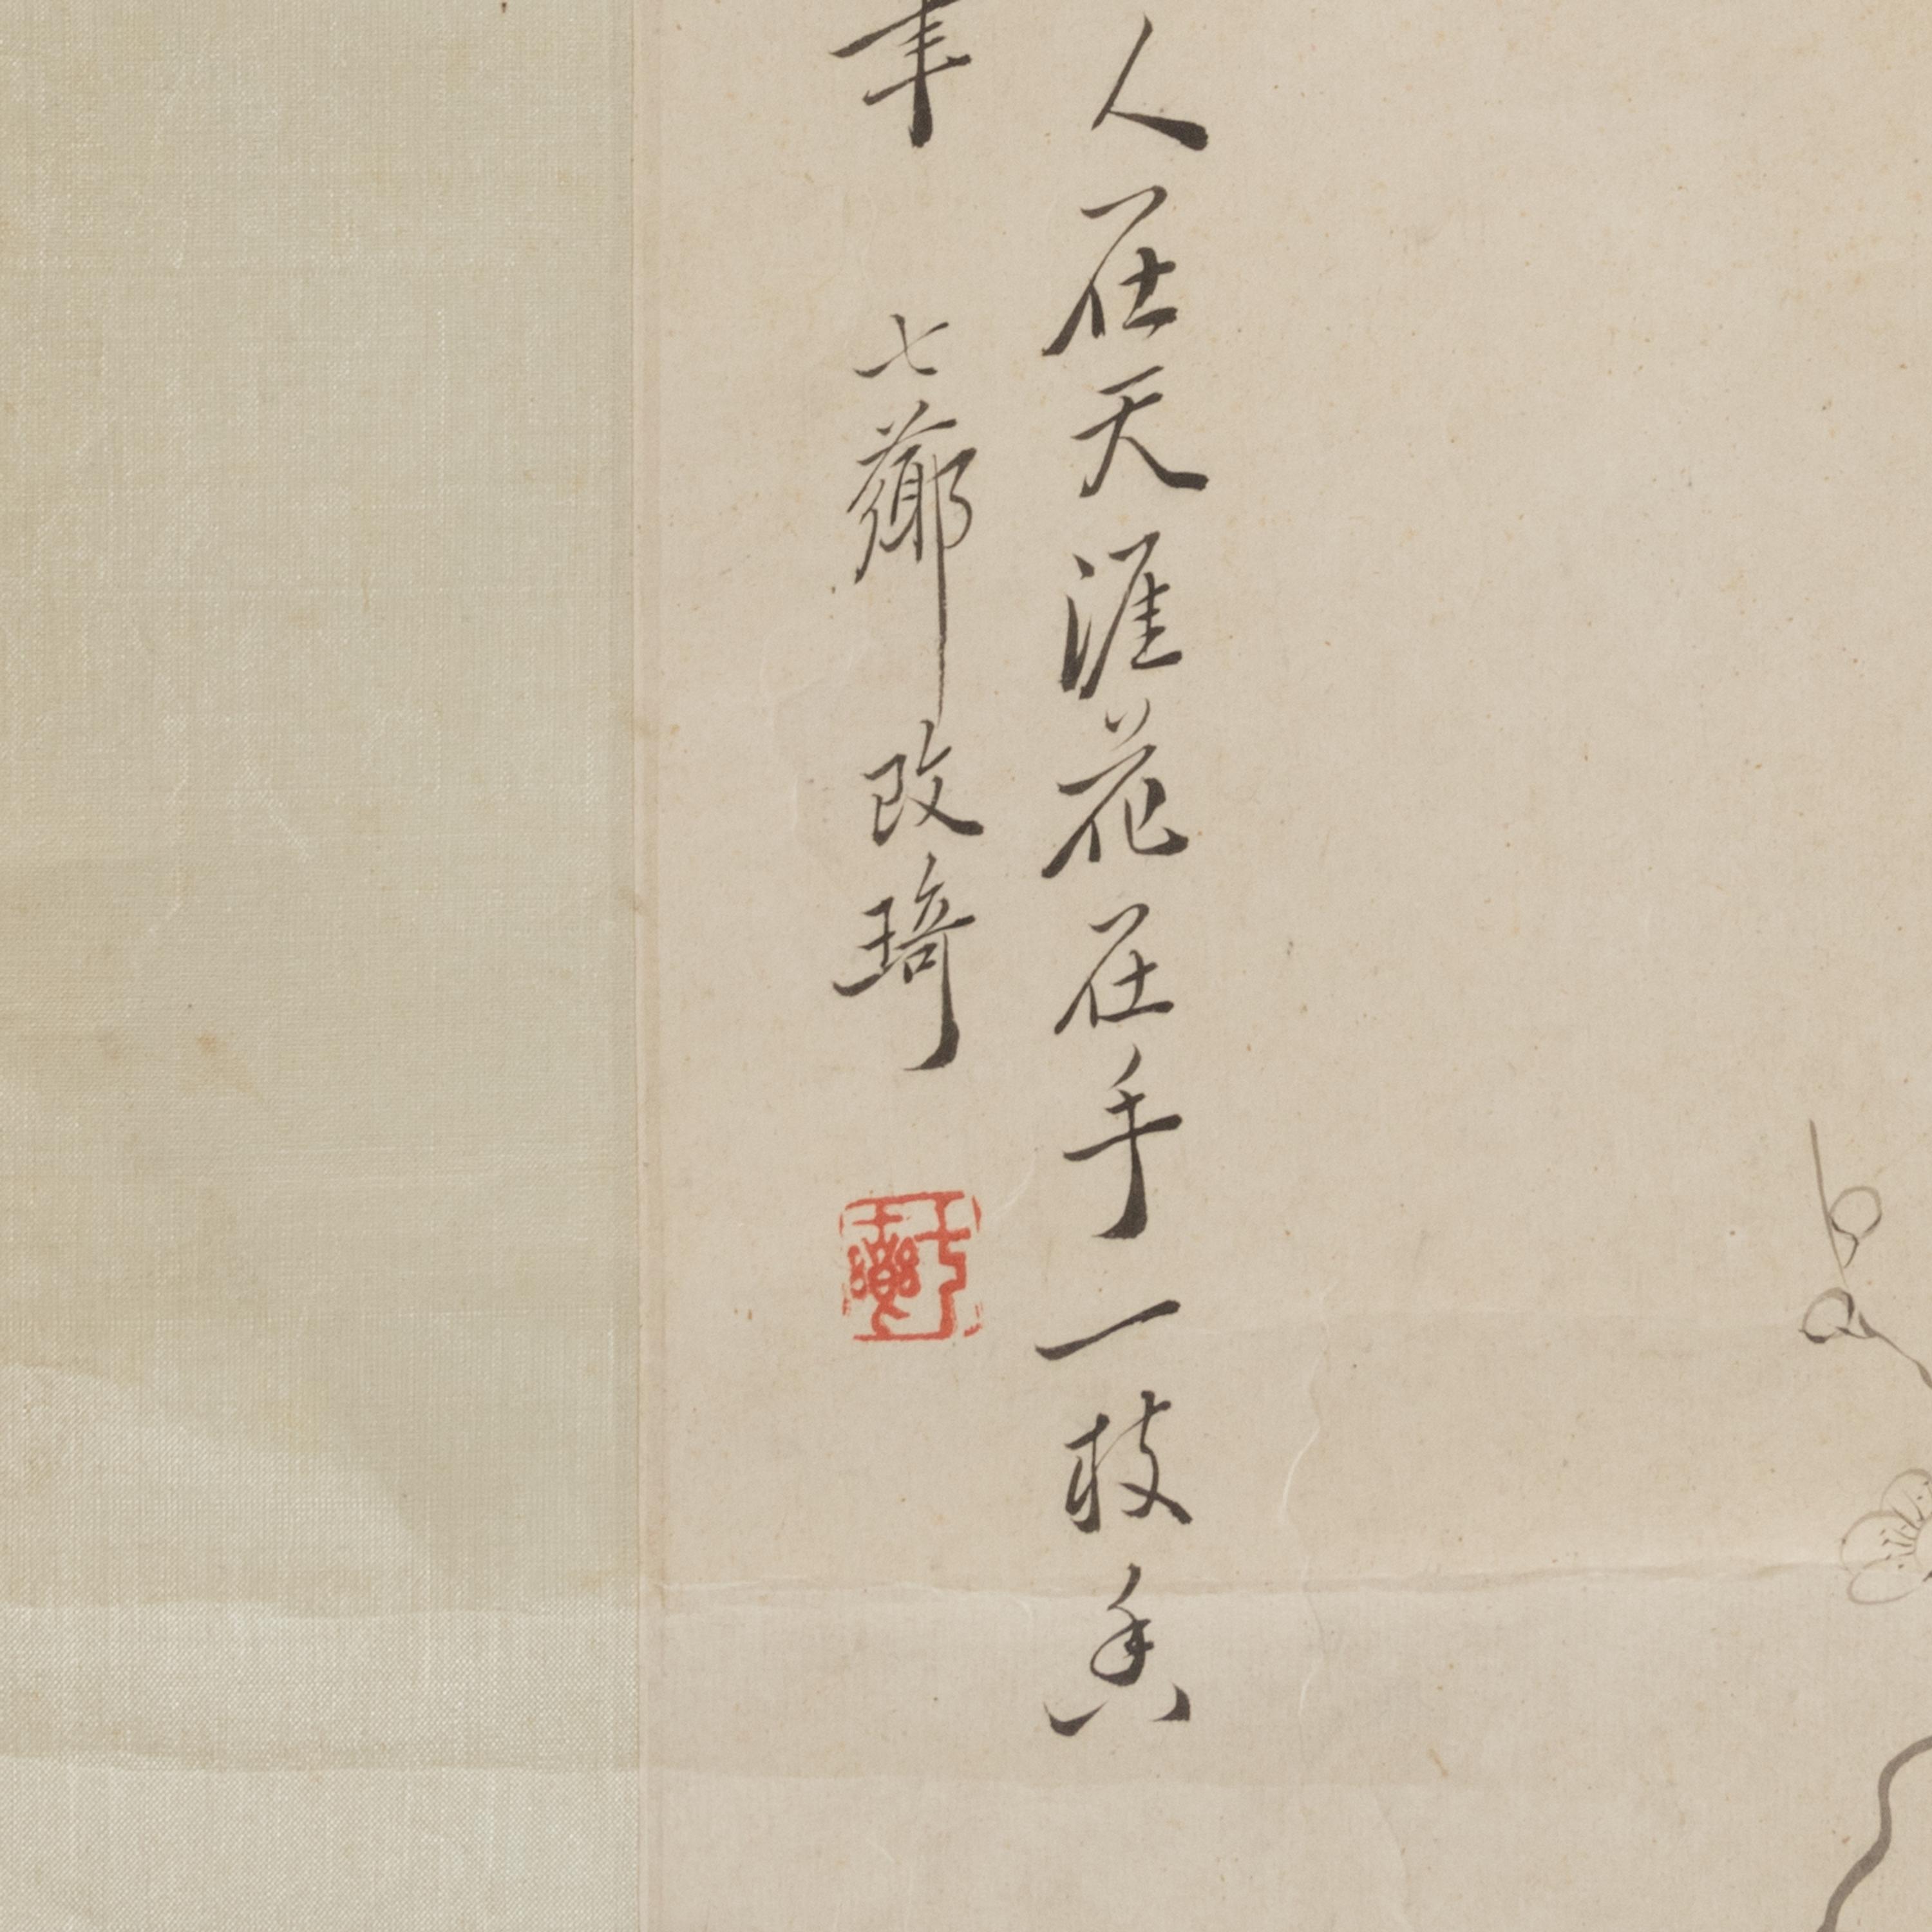 人在天涯花在手一枝香
七薌改琦